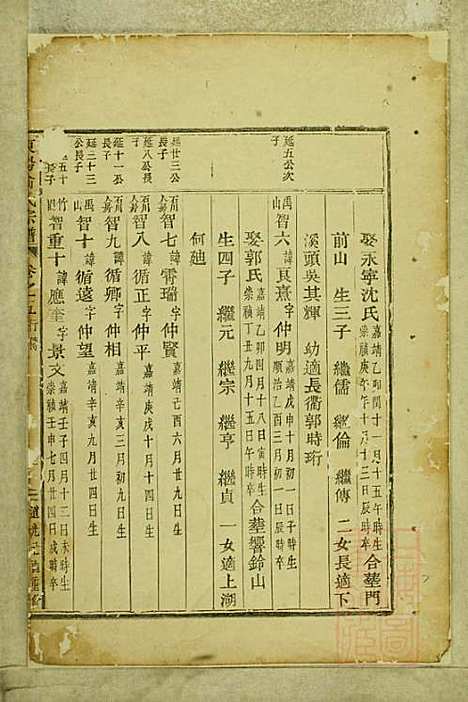 娶永寧沈氏 嘉靖乙卯閏十一月十五午時生 崇禎庚午年十月十三日辰時卒 合塟門
前山 生三子 繼儒 繼倫 繼傳 二女長適下
溪頭吳其輝 幼適長衢郭時珩
延五公次子
智六 諱良熹字仲明 嘉靖戊申十月初一日子時生 順治乙酉三月初一日辰時卒
娶郭氏 嘉靖乙卯四月十八日寅時生 崇禎丁丑九月十三日未時卒 合塟響鈴山
生四子 繼元 繼宗 繼亨 繼貞 一女適上湖
何廸
延廿三公長子
智七 諱霄璠字仲賢 嘉靖己酉六月廿九日生
延八公長子
智八 諱循正字仲平 嘉靖庚戌十月十四日生
延十一公長子
智九 諱循卿字仲相 嘉靖辛亥三月初九日生
延二十三公長子
智十 諱循遠字仲望 嘉靖辛亥九月廿四日生
智重十 諱應奎字景文 嘉靖壬子四月十二日未時生 崇禎壬申七月廿四日戌時卒